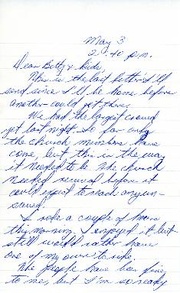 May 3
2:40 p.m.
Dear Betty & kids,
This is the last letter I'll
send since I'll be home before
another could get there.
We had the largest crowd
yet last night. So far only
the church members have
come, but this is the way
it ought to be. The church
needed revival before it
could expect to reach any un-
saved.
I rode a couple of horses
this morning. I enjoyed it but
still would rather have
one of my own to ride.
The people have been fine
to me, but I'm so ready